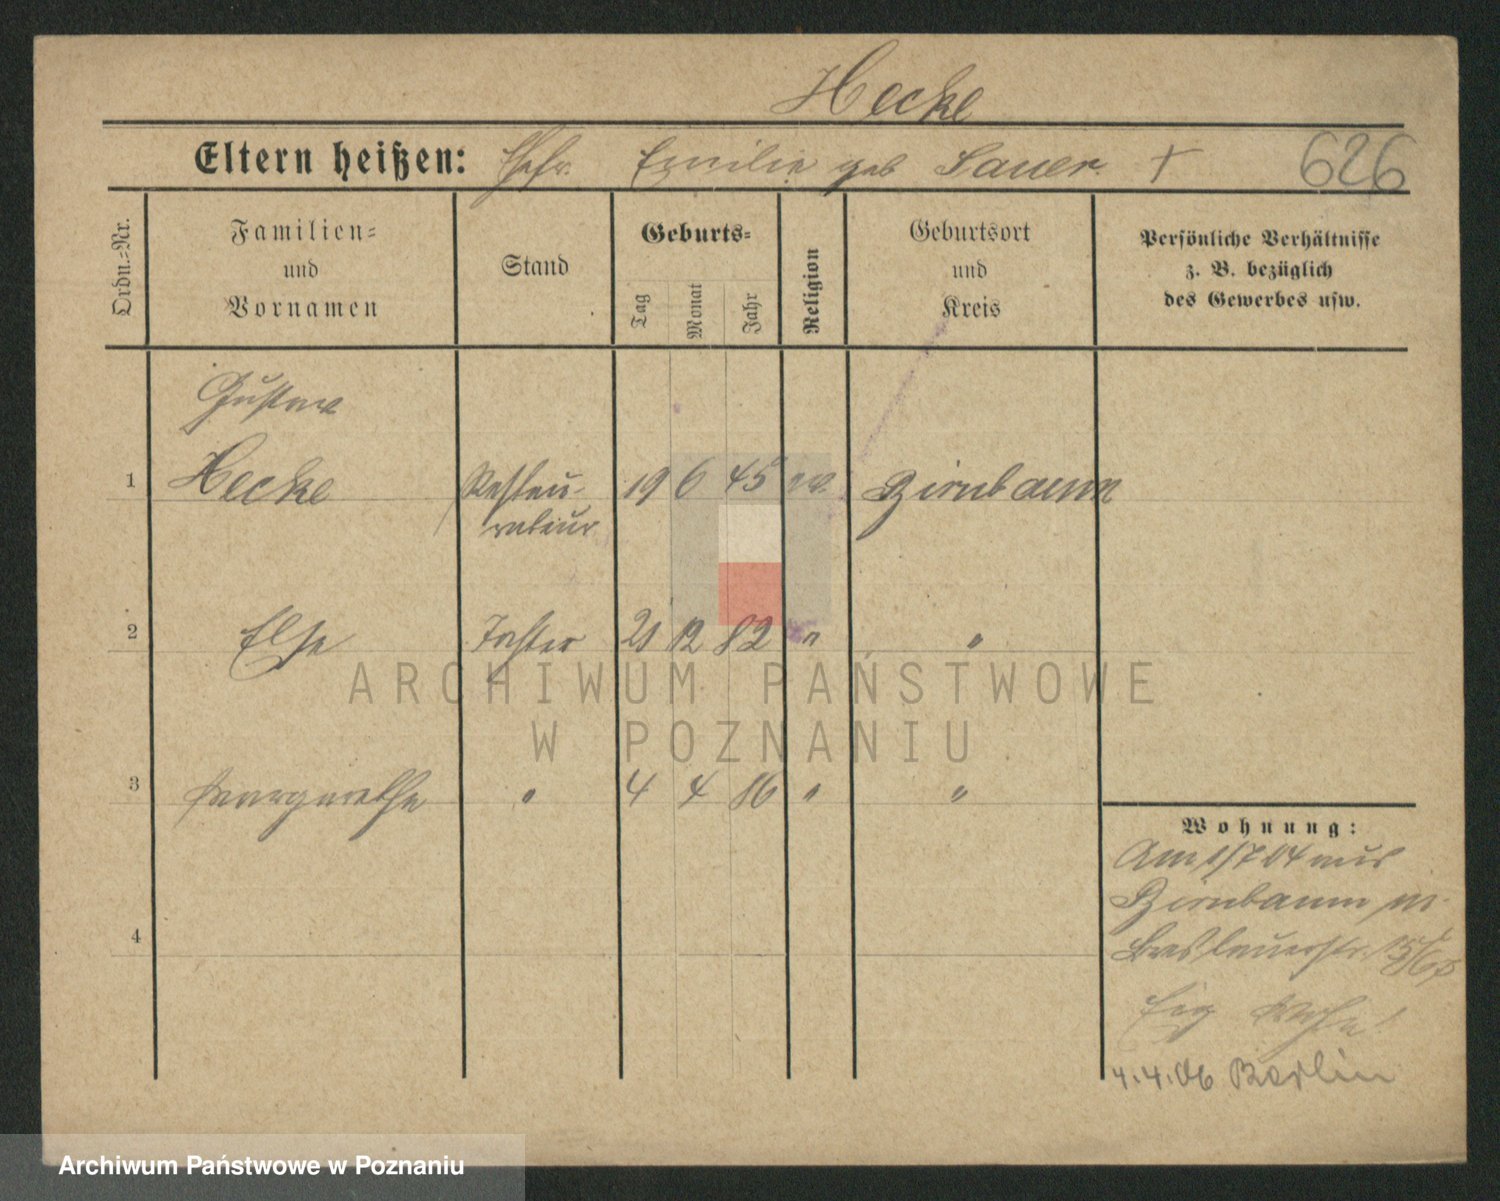 Hecke
Eltern heißen: Ehefr. Emilie geb Sauer. † 626
Ordn.-Nr.
Familien-
und
Vornamen
Stand
Geburts-
Tag
Monat
Jahr
Religion
Geburtsort
und
Kreis
Persönliche Verhältnisse
z. B. bezüglich
des Gewerbes usw.
Gustav
1 Hecke Restau- 19 6 45 ev. Birnbaum
rateur
2 Else Tochter 21 12 82 " "
3 Margarethe " 4 4 86 " "
4
Wohnung:
Am 1/7 04 aus
Birnbaum n.
Breslauerstr. 15/16
Eig Wohn!
4.4.06 Berlin
ARCHIWUM PAŃSTWOWE
W POZNANIU
Archiwum Państwowe w Poznaniu